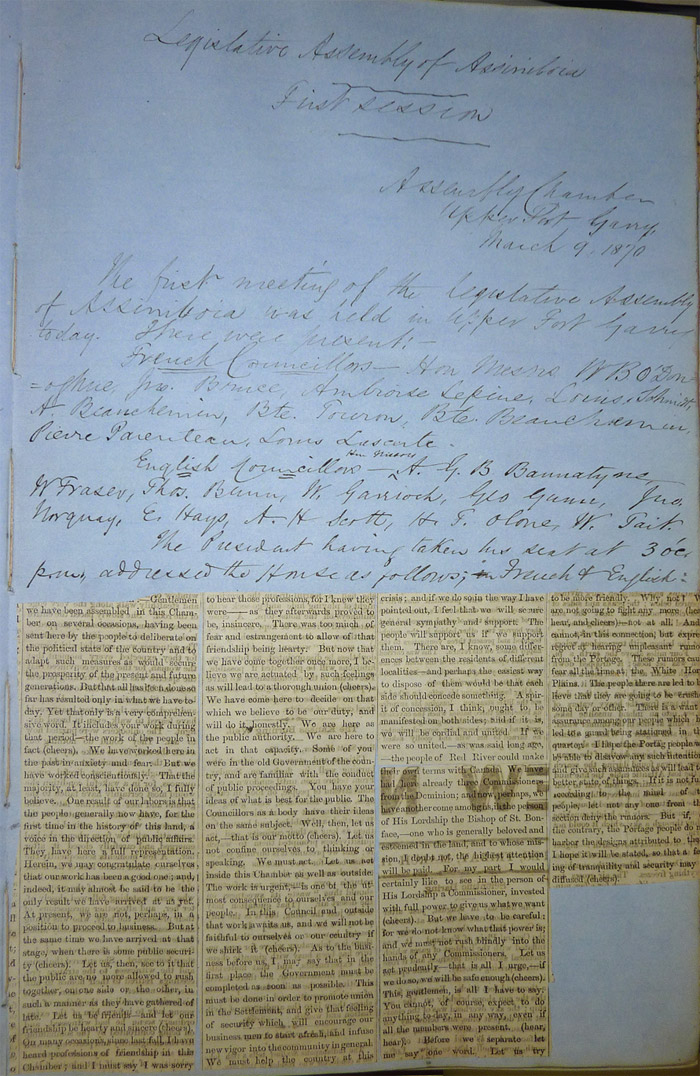 Legislative Assembly of Assiniboia
First session
Assembly Chamber
Upper Fort Garry,
March 9, 1870
The first meeting of the Legislative Assembly
of Assiniboia was held in Upper Fort Garry
today. There were present:—
French Councillors— Hon Messrs W B O'Don-
=oghue, Jno. Bruce, Ambroise Lepine, Louis Schmidt
A. Beauchemin, Bte. Touron, Bte. Beauchemin,
Pierre Parenteau, Louis Lascerte.
Hon Messrs
English Councillors — A. G. B Bannatyne,
W Fraser, Thos. Bunn, W. Garrioch, Geo Gunn, Jno.
Norquay, E. Hays, A. H Scott, H. F. Olone, W. Tait.
The President having taken his seat at 3 oc
p.m., addressed the House as follows; in French & English:
Gentlemen
we have been assembled in this Cham-
ber on several occasions, having been
sent here by the people to deliberate on
the political state of the country and to
adapt such measures as would secure
the prosperity of the present and future
generations. But that all has been done so
far has resulted only in what we have to-
day. Yet that only is a very comprehen-
sive word. It includes your work during
that period—the work of the people in
fact (cheers). We have worked here in
the past in anxiety and fear. But we
have worked conscientiously. That the
majority, at least, have done so, I fully
believe. One result of our labors is that
the people generally now have, for the
first time in the history of this land, a
voice in the direction of public affairs.
They have here a full representation.
Herein, we may congratulate ourselves
that our work has been a good one; and,
indeed, it may almost be said to be the
only result we have arrived at as yet.
At present, we are not, perhaps, in a
position to proceed to business. But at
the same time we have arrived at that
stage, when there is some public securi-
ty (cheers). Let us, then, see to it that
the public are no more allowed to rush
together, on one side or the other, in
such a manner as they have gathered of
late. Let us be friends—and let our
friendship be hearty and sincere (cheers).
On many occasions, since last fall, I have
heard professions of friendship in this
Chamber; and I must say I was sorry
to hear those professions, for I knew they
were—— as they afterwards proved to
be, insincere. There was too much of
fear and estrangement to allow of that
friendship being hearty. But now that
we have come together once more, I be-
lieve we are actuated by such feelings
as will lead to a thorough union (cheers).
We have come here to decide on that
which we believe to be our duty, and
will do it honestly. We are here as
the public authority. We are here to
act in that capacity. Some of you
were in the old Government of the coun-
try, and are familiar with the conduct
of public proceedings. You have your
ideas of what is best for the public. The
Councillors as a body have their ideas
on the same subject. Well, then, let us
act,—that is our motto (cheers). Let us
not confine ourselves to thinking or
speaking. We must act. Let us act
inside this Chamber as well as outside
The work is urgent,—is one of the ut-
most consequence to ourselves and our
people. In this Council and outside
that work awaits us, and we will not be
faithful to ourselves or our country if
we shirk it (cheers). As to the busi-
ness before us, I may say that in the
first place, the Government must be
completed as soon as possible. This
must be done in order to promote union
in the Settlement, and give that feeling
of security which will encourage our
business men to start afresh, and infuse
new vigor into the community in general.
We must help the country at this
crisis; and if we do so in the way I have
pointed out, I feel that we will secure
general sympathy and support. The
people will support us if we support
them. There are, I know, some differ-
ences between the residents of different
localities—and perhaps the easiest way
to dispose of them would be that each
side should concede something. A spir-
it of concession, I think, ought to be
manifested on both sides; and if it is,
we will be cordial and united. If we
were so united—as was said long ago,
—the people of Red River could make
their own terms with Canada. We have
had here already three Commissioners
from the Dominion; and now, perhaps, we
have another come amongst us, in the person
of His Lordship the Bishop of St. Bon-
iface,—one who is generally beloved and
esteemed in the land, and to whose mis-
sion, I doubt not, the highest attention
will be paid. For my part I would
certainly like to see in the person of
His Lordship a Commissioner, invested
with full power to give us what we want
(cheers). But we have to be careful;
for we do not know what that power is;
and we must not rush blindly into the
hands of any Commissioners. Let us
act prudently—that is all I urge,—if
we do so, we will be safe enough (cheers).
This, gentlemen, is all I have to say.
You cannot, of course, expect to do
anything to-day, in any way, even if
all the members were present. (hear,
hear). Before we separate let
me say one word. Let us try
to be more friendly. Why not? W
are not going to fight any more (
hear, and cheers)—not at all. And
cannot, in this connection, but expre
regret at hearing unpleasant rumo
from the Portage. These rumors cau
fear all the time at the White Hor
Plains. The people there are led to
lieve that they are going to be crus
some day or other. There is a want
assurance among our people which
led to a guard being stationed in
quarter. I hope the Portage people w
be able to disavow any such intention
and give such assurances as will lead t
better state of things. If it is not in
according to the mind of
people, let not any one from
section deny the rumors. But if,
the contrary, the Portage people do n
harbor the designs attributed to the
I hope it will be stated, so that a fe
ing of tranquility and security may
diffused (cheers).